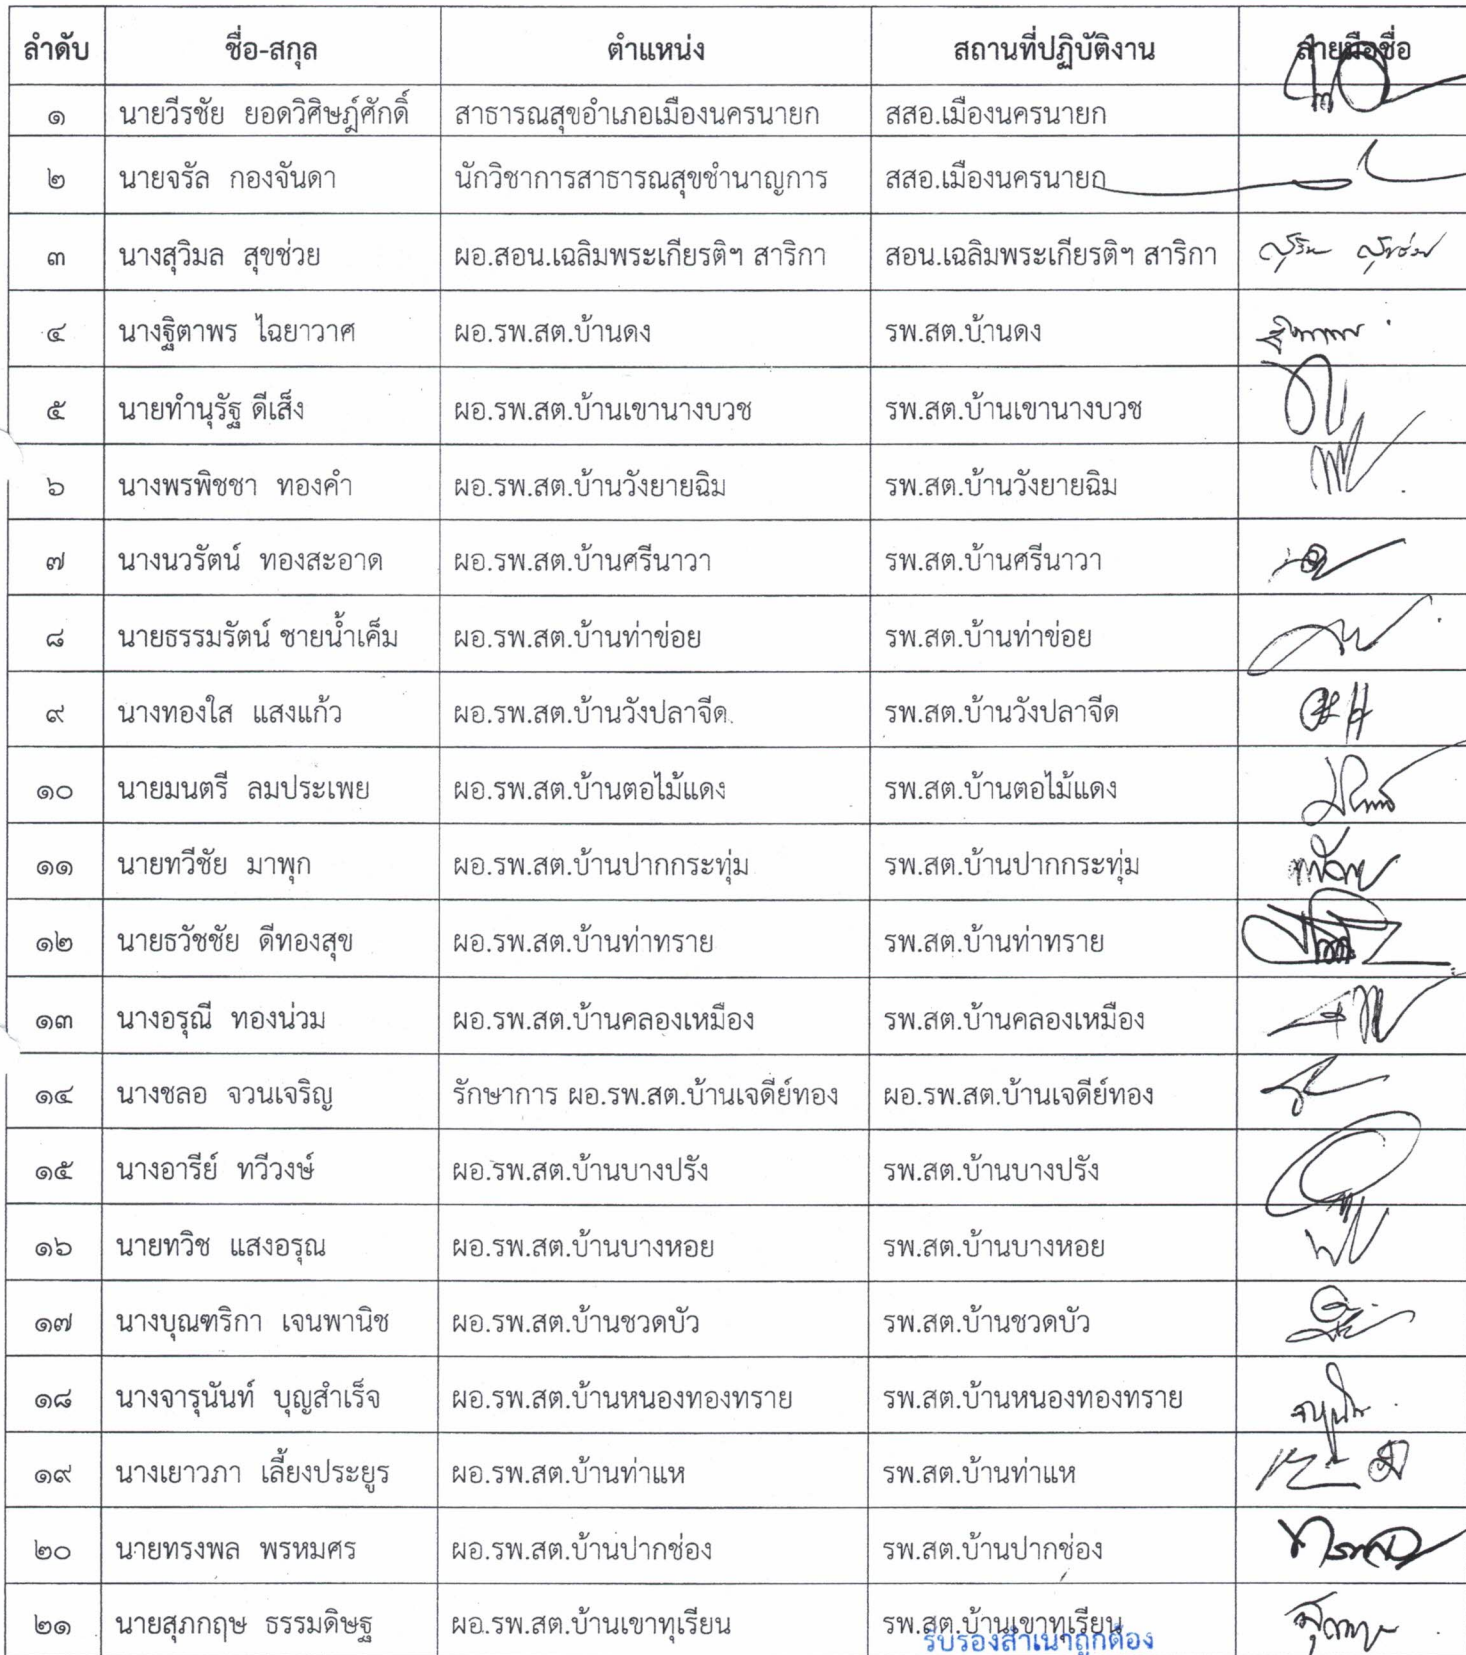 ลำดับ ชื่อ-สกุล ตำแหน่ง สถานที่ปฏิบัติงาน ลายมือชื่อ
๑ นายวีรชัย ยอดวิศิษฎ์ศักดิ์ สาธารณสุขอำเภอเมืองนครนายก สสอ.เมืองนครนายก
๒ นายจรัล กองจันดา นักวิชาการสาธารณสุขชำนาญการ สสอ.เมืองนครนายก
๓ นางสุวิมล สุขช่วย ผอ.สอน.เฉลิมพระเกียรติฯ สาริกา สอน.เฉลิมพระเกียรติฯ สาริกา
๔ นางฐิตาพร ไฉยาวาศ ผอ.รพ.สต.บ้านดง รพ.สต.บ้านดง
๕ นายทำนุรัฐ ดีเส็ง ผอ.รพ.สต.บ้านเขานางบวช รพ.สต.บ้านเขานางบวช
๖ นางพรพิชชา ทองคำ ผอ.รพ.สต.บ้านวังยายฉิม รพ.สต.บ้านวังยายฉิม
๗ นางนวรัตน์ ทองสะอาด ผอ.รพ.สต.บ้านศรีนาวา รพ.สต.บ้านศรีนาวา
๘ นายธรรมรัตน์ ชายน้ำเค็ม ผอ.รพ.สต.บ้านท่าข่อย รพ.สต.บ้านท่าข่อย
๙ นางทองใส แสงแก้ว ผอ.รพ.สต.บ้านวังปลาจีด รพ.สต.บ้านวังปลาจีด
๑๐ นายมนตรี ลมประเพย ผอ.รพ.สต.บ้านตอไม้แดง รพ.สต.บ้านตอไม้แดง
๑๑ นายทวีชัย มาพุก ผอ.รพ.สต.บ้านปากกระทุ่ม รพ.สต.บ้านปากกระทุ่ม
๑๒ นายธวัชชัย ดีทองสุข ผอ.รพ.สต.บ้านท่าทราย รพ.สต.บ้านท่าทราย
๑๓ นางอรุณี ทองน่วม ผอ.รพ.สต.บ้านคลองเหมือง รพ.สต.บ้านคลองเหมือง
๑๔ นางชลอ จวนเจริญ รักษาการ ผอ.รพ.สต.บ้านเจดีย์ทอง ผอ.รพ.สต.บ้านเจดีย์ทอง
๑๕ นางอารีย์ ทวีวงษ์ ผอ.รพ.สต.บ้านบางปรัง รพ.สต.บ้านบางปรัง
๑๖ นายทวิช แสงอรุณ ผอ.รพ.สต.บ้านบางหอย รพ.สต.บ้านบางหอย
๑๗ นางบุณฑริกา เจนพานิช ผอ.รพ.สต.บ้านชวดบัว รพ.สต.บ้านชวดบัว
๑๘ นางจารุนันท์ บุญสำเร็จ ผอ.รพ.สต.บ้านหนองทองทราย รพ.สต.บ้านหนองทองทราย
๑๙ นางเยาวภา เลี้ยงประยูร ผอ.รพ.สต.บ้านท่าแห รพ.สต.บ้านท่าแห
๒๐ นายทรงพล พรหมศร ผอ.รพ.สต.บ้านปากช่อง รพ.สต.บ้านปากช่อง
๒๑ นายสุภกฤษ ธรรมดิษฐ ผอ.รพ.สต.บ้านเขาทุเรียน รพ.สต.บ้านเขาทุเรียน
รับรองสำเนาถูกต้อง